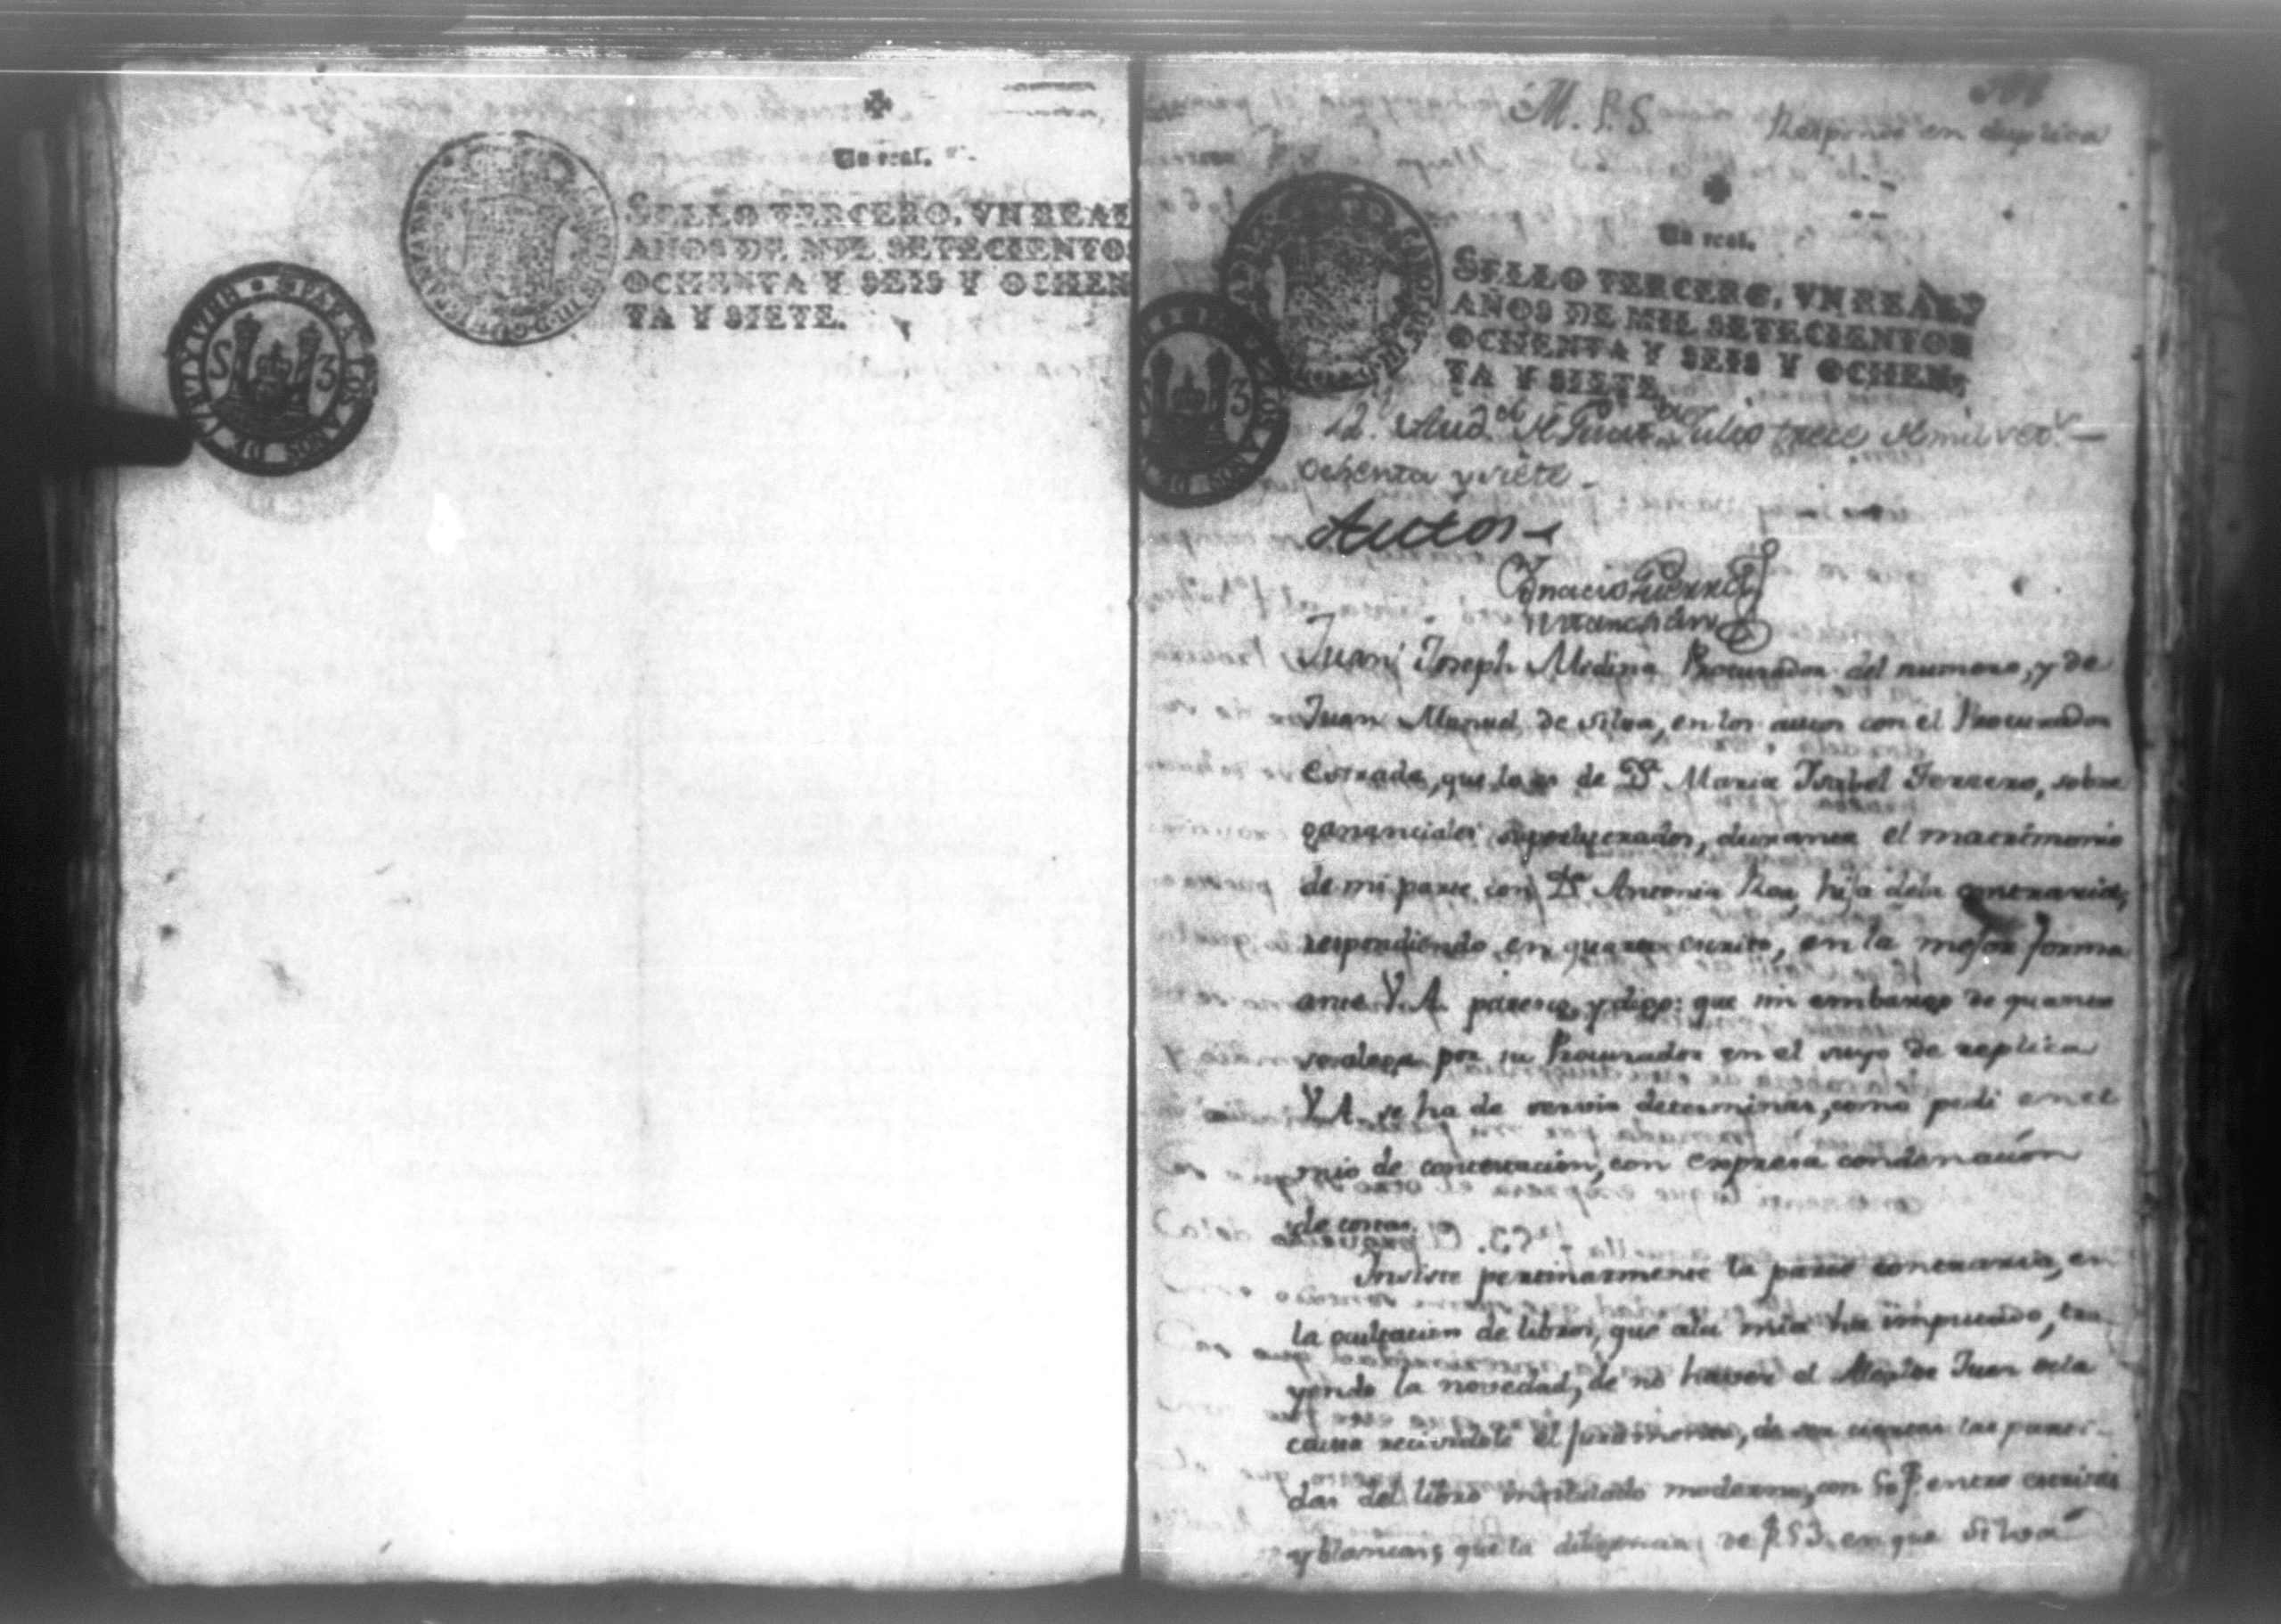 Un real.
SELLO TERCERO, VN REAL
AÑOS DE MIL SETECIENTOS
OCHENTA Y SEIS Y OCHEN
TA Y SIETE.
HISPAN LOS AÑOS DE
S 3
M. P. S.
Responde en duplica
Un real.
SELLO TERCERO, VN REAL,
AÑOS DE MIL SETECIENTOS
OCHENTA Y SEIS Y OCHEN,
TA Y SIETE.
CAROLUS III
S 3
Rl. Audª. Julio trece de mil setᵗ.
ochenta y siete.
Autos
Ignacio Guerra
Marchan
Juan Joseph Medina Procurador del numero, y de
Juan Manuel de Silva, en los autos con el Procurador
Estrada, que lo es de Dª Maria Isabel Ferrero, sobre
gananciales superlucrados, durante el matrimonio
de mi parte con Dª Antonia Roa, hija dela contraria,
respondiendo en quarto escrito, en la mejor forma
ante V.A. paresco, y digo: que sin embargo de quanto
se alega por su Procurador en el suyo de replica
V.A. se ha de servir determinar, como pedi en el
mio de contestacion, con expresa condenación
de costas.
Insiste pertinazmente la parte contraria, en
la ocultacion de libros, que ala mia ha imputado, tra
yendo la novedad, de no haver el Alcalde Juan dela
causa recividole el juramento, de ser ciertas las parti-
das del libro intitulado moderno, con 50 f. entre escritas
y blancas, que la diligencia de f 53. en que Silva